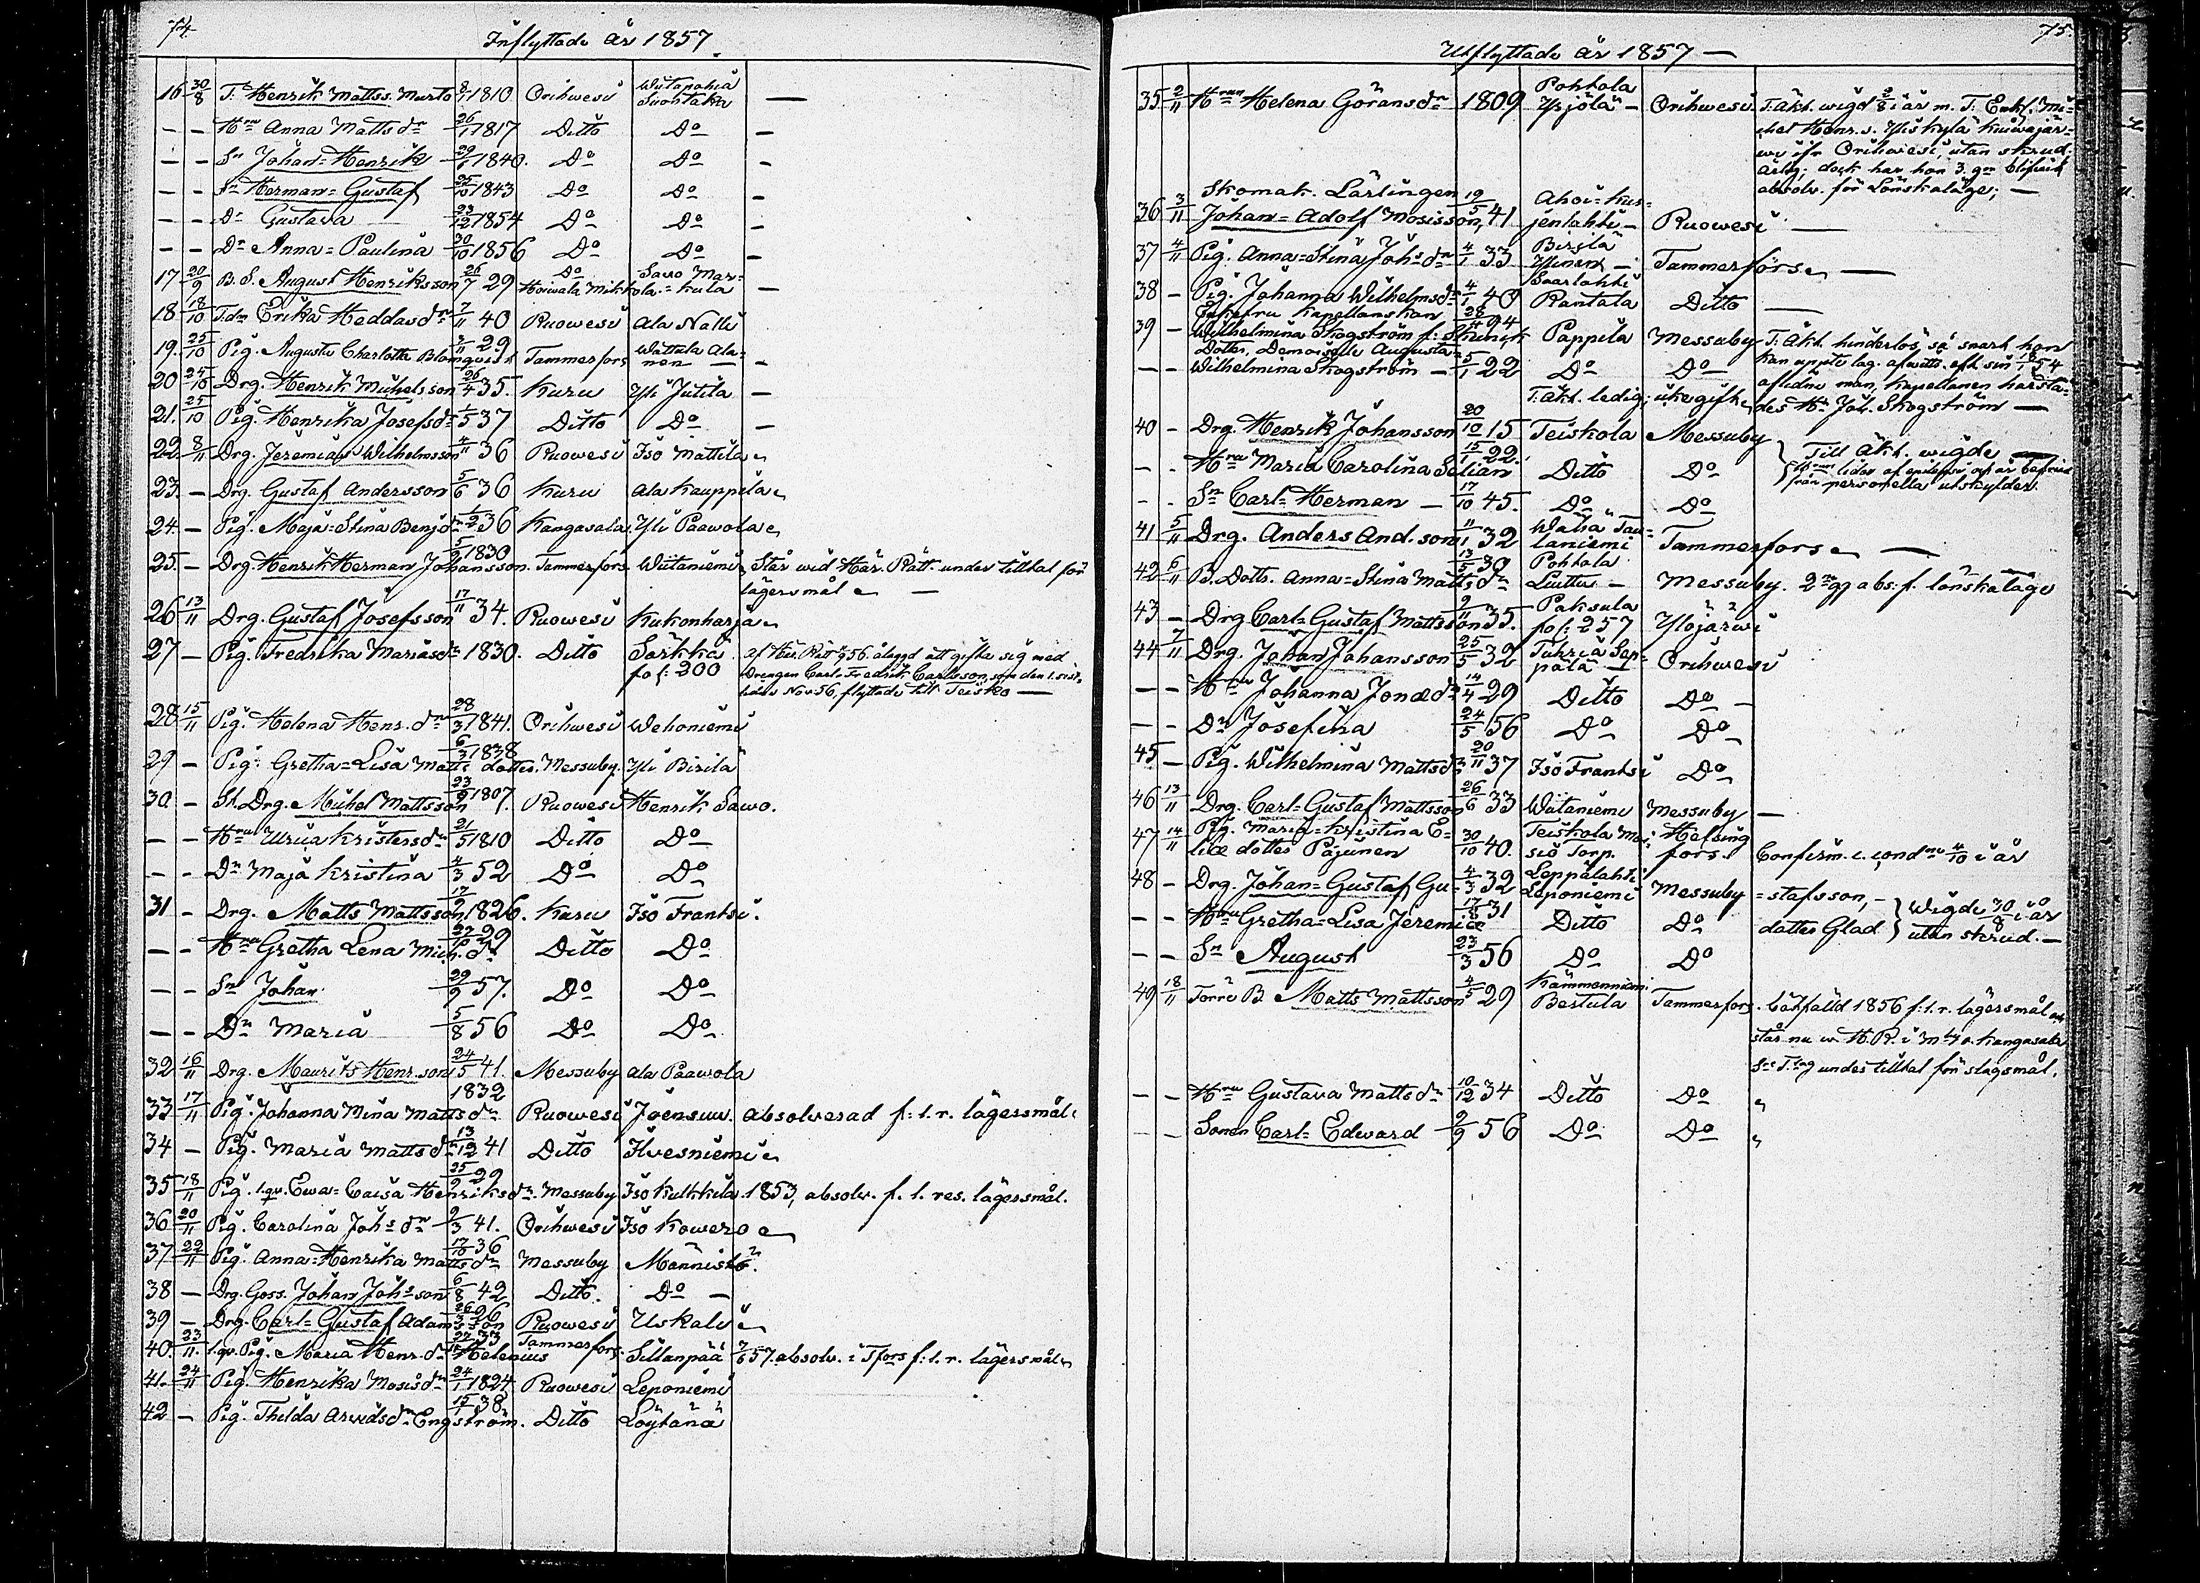 74.
Inflyttade år 1857.
16 30/8 T. Henrik Mattss. Murto 8/1 1810 Orihwesi Wiitapohia Suontaka —
— — Hru Anna Mattsdr 26/1 1817 Ditto Do —
— — Sn Johan=Henrik 29/6 1840. Do Do —
— — Sn Herman=Gustaf 25/10 1843 Do Do —
— — Dr Gustava 23/12 1854 Do Do —
— — Dr Anna=Paulina 30/10 1856 Do Do —
17 20/9 B. S. August Henriksson 26/7 29 Do Savo Mar=
Hoiwala Mikkola.=kula —
18 18/10 T.dr Erika Heddasdr 7/11 40 Ruowesi Ala Nalli
19. 25/10 Pig. Augusta Charlotta Blomqvist 2/11 29 Tammerfors Wattula Ala=
nen —
20 24/10 Drg. Henrik Michelsson 26/4 35. Kuru Yli Jutila —
21. 25/10 Pig. Henrika Josefsdr 1/5 37 Ditto Do —
22. 8/11 Drg. Jeremias Wilhelmsson 4/11 36 Ruowesi Iso Mattila
23. — Drg. Gustaf Andersson 5/6 36 Kuru Ala Kauppila
24. — Pig. Maja=Stina Benjdr 1/2 36 Kangasala. Yli Paawola
25. — Drg. Henrik Herman Johansson. 5/2 1830 Tammerfors Wiitaniemi Står wid Här. Rätt under tilltal för
lägersmål —
26 13/11 Drg. Gustaf Josefsson 17/11 34. Ruowesi Kukonharja
27 — Pig. Fredrika Mariasdr 1830. Ditto Särkkä af Här. Rätt 56 ålagd att gifta sig med
fol: 200 Drengen Carl Fredrik Carlsson, som den 1. sist=
lidne Nov 56, flyttade till Teisko —
28 15/11 Pig. Helena Henr. dr 28/3 1841. Orihwesi Wehoniemi
29 — Pig. Gretha=Lisa Matts dotter. 6/3 1838 Messuby. Yli Birilä
30 — St. Drg. Michel Mattsson 23/9 1807. Ruowesi Henrik Sawo.
— — Hru Ulrica Kristersdr 21/5 1810 Ditto Do
— — Dr Maja Kristina 4/3 52 Do Do
31 — Drg. Matts Mattsson 17/2 1826. Kuru Iso Frantsi.
— — Hru Gretha Lena Mich. dr 22/10 29 Ditto Do
— — Sn Johan 29/9 57. Do Do
— — Dr Maria 5/8 56 Do Do
32 16/11 Drg. Maurits Henr. son 24/5 41. Messuby Ala Paawola
33 17/11 Pig. Johanna Mina Mattsdr 1832 Ruowesi Joensuu. absolverad f: 1. r. lägersmål.
34 — Pig. Maria Mattsdr 13/12 41 Ditto Ilvesniemi
35 18/11 Pig. l.qv. Ewa=Caisa Henriksdr. 25/2 29 Messuby Iso Kulkkila 1853, absolv. f. 1. res. lägersmål.
36 20/11 Pig. Carolina Johs dr 9/3 41. Orihwesi Iso Kowero
37 22/11 Pig. Anna=Henrika Mattsdr 17/10 36 Messuby Männistö.
38 — Drg. Goss. Johan Johsson 6/8 42 Ditto. Do —
39 — Drg. Carl=Gustaf Adamsson 26/3 26 Ruowesi Uskali
40. 23/11. l.qv. Pig. Maria Henr. dr Helenius 22/ 33 Tammerfors. Sillanpää 7/6 57. absolv. i Tfors f: 1. r. lägersmål
41. 24/11 Pig. Henrika Mosisdr 24/1 1824 Ruowesi Leponiemi
42 — Pig. Thilda Arvidsdr Engström. 15/1 38 Ditto Löytänä
75.
Utflyttade år 1857 —
35 2/11 Hrun Helena Göransdr 1809 Pohtola Ypjölä — Orihwesi. T. Äkt. wigd 2/8 i år m. T. Enkl. Mi=
chel Henr. s. Yliskylä Kuiwajär=
wi ifr Orihwesi, utan skrud.
ärlig; dock har hon 3. gr blifwit
absolv. för Lönskaläge; —
36 3/11 Skomak. Lärlingen
Johan=Adolf Mosisson, 19/5 41 Ahoi=Kus=
jenlahti — Ruowesi —
37 4/11 Pig. Anna=Stina Johsdr 4/1 33 Birilä Ylinen — Tammerfors. —
38 — Pig. Johanna Wilhelmsdr 4/1 40 Saarlahti Rantala Ditto —
39 — Enkefru Kapellanskan
Wilhelmina Skogström f: Skunck 28/4 94 Pappila Messuby T. Äkt. hinderlös, så snart hon
Dotter, Demoiselle Augusta=
— — Wilhelmina Skogström — 5/1 22 Do Do kan uppte lag. afwitts. eft. sin 54
aflidne man, Kapellanen härstä=
T. Äkt. ledig; icke gift. des Hr Joh. Skogström —
40 — Drg. Henrik Johansson 20/10 15 Teiskola Messuby
— — Hru Maria Carolina Selian 15/1 22. Ditto Do Till Äkt. wigde —
Hrun lider af epilepsi och är befriad
från personella utskylder.
— Sn Carl=Herman — 17/10 45. Do Do
41 5/11 Drg. Anders And. son 11/1 32 Wähä Tau=
laniemi Tammerfors —
42 6/11 B. Dottr. Anna=Stina Mattsdr 13/5 30 Pohtola Luttu — Messuby. 2ne gg abs: f. lönskaläge
43 — Drg Carl=Gustaf Mattsson 9/11 35. Paksula
fol: 257 Ylöjärwi
44 7/11 Drg. Johan Johansson 25/5 32 Tuhria Sep=
pälä — Orihwesi
— — Hru Johanna Jonædr 14/4 29 Ditto Do —
— — Dr Josefina 24/5 56 Do Do
45 — Pig. Wilhelmina Mattsdr 20/11 37 Iso Frantsi Do
46 13/11 Drg. Carl=Gustaf Mattsson 26/6 33 Wiitaniemi Messuby —
47 14/11 Pig. Maria=Kristina E=
liæ dotter Pajunen 30/10 40. Teiskola Moi=
sio Torp. Helsing
fors. Confirm. c. cond ne 4/10 i år
48 — Drg. Johan=Gustaf Gu= 4/3 32 Leppälahti
Leponiemi Messuby =stafsson, —
— — Hru Gretha=Lisa Jeremiæ 17/8 31 Ditto Do dotter Glad. Wigde 30/8 i år
utan skrud. —
— — Sn August 23/3 56 Do Do
49 18/11 Torp B Matts Mattsson 4/5 29 Kämmenniemi
Bertula Tammerfors. Sakfälld 1856 f: 1. r. lägersmål och
står nu w. H. R. i Kangasala
Sn T.lag under tilltal för slagsmål.
— — Hru Gustava Mattsdr 10/12 34 Ditto Do "
— Sonen Carl=Edward 2/9 56 Do Do "